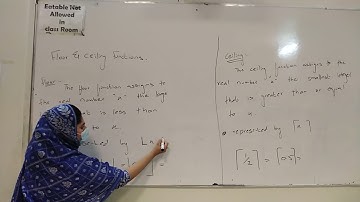 Eatable Not
Allowed
in
class Room
Floor & ceiling functions.
Floor
The floor function assigns to
the real number "x" the large
that is less than
to x.
by ⌊x
Ceiling:
The ceiling function assigns to the
real number "x" the smallest
that is greater than or equal
to x
• represented by ⌈x⌉
⌈1/2⌉ = ⌈0.5⌉ =